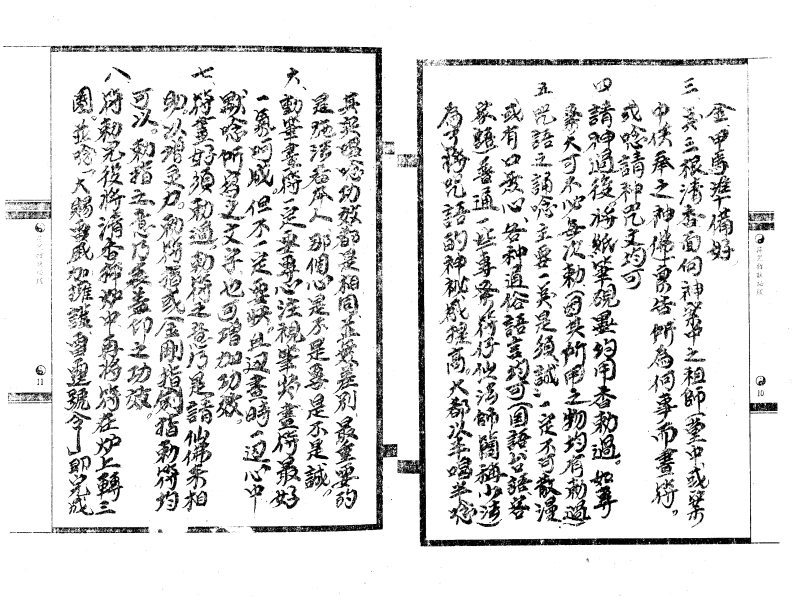 金甲馬準備好
三、燃三根清香面向神案中之祖師(堂中或案
中供奉之神佛)稟告所為何事而畫符。
或唸請神咒文均可
四、請神過後,將紙筆硯墨均用香勅過。如專
業大可不必每次勅(因其所用之物均有勅過)
五、咒語之誦唸主要一義是須誠,一定不可散漫
或有口無心,各種通俗語言均可(國語台語等
眾語)普通一些專畫符仔仙(法師簡稱小法)
為了將咒語的神秘感提高。大都以半唱半唸
其起喂唸功效都是相同,並無差別最重要的
是施法者本人那個心是不是專是不是誠。
六、動筆畫符一定要專心注視筆尖,畫符最好
一氣呵成,但不一定要快。且邊畫時一邊心中
默唸所寫之文字也可增加功效。
七、符畫好須勅過,勅符之意乃是請仙佛來相
助以增靈力。勅符指或金剛指劍指勅符均
可以。勅指之意乃是蓋印之功效。
八、符勅完後將清香稱妙中再將符在炉上轉三
圈。並唸「大賜靈威加護護雷運號令」即完成
10
11